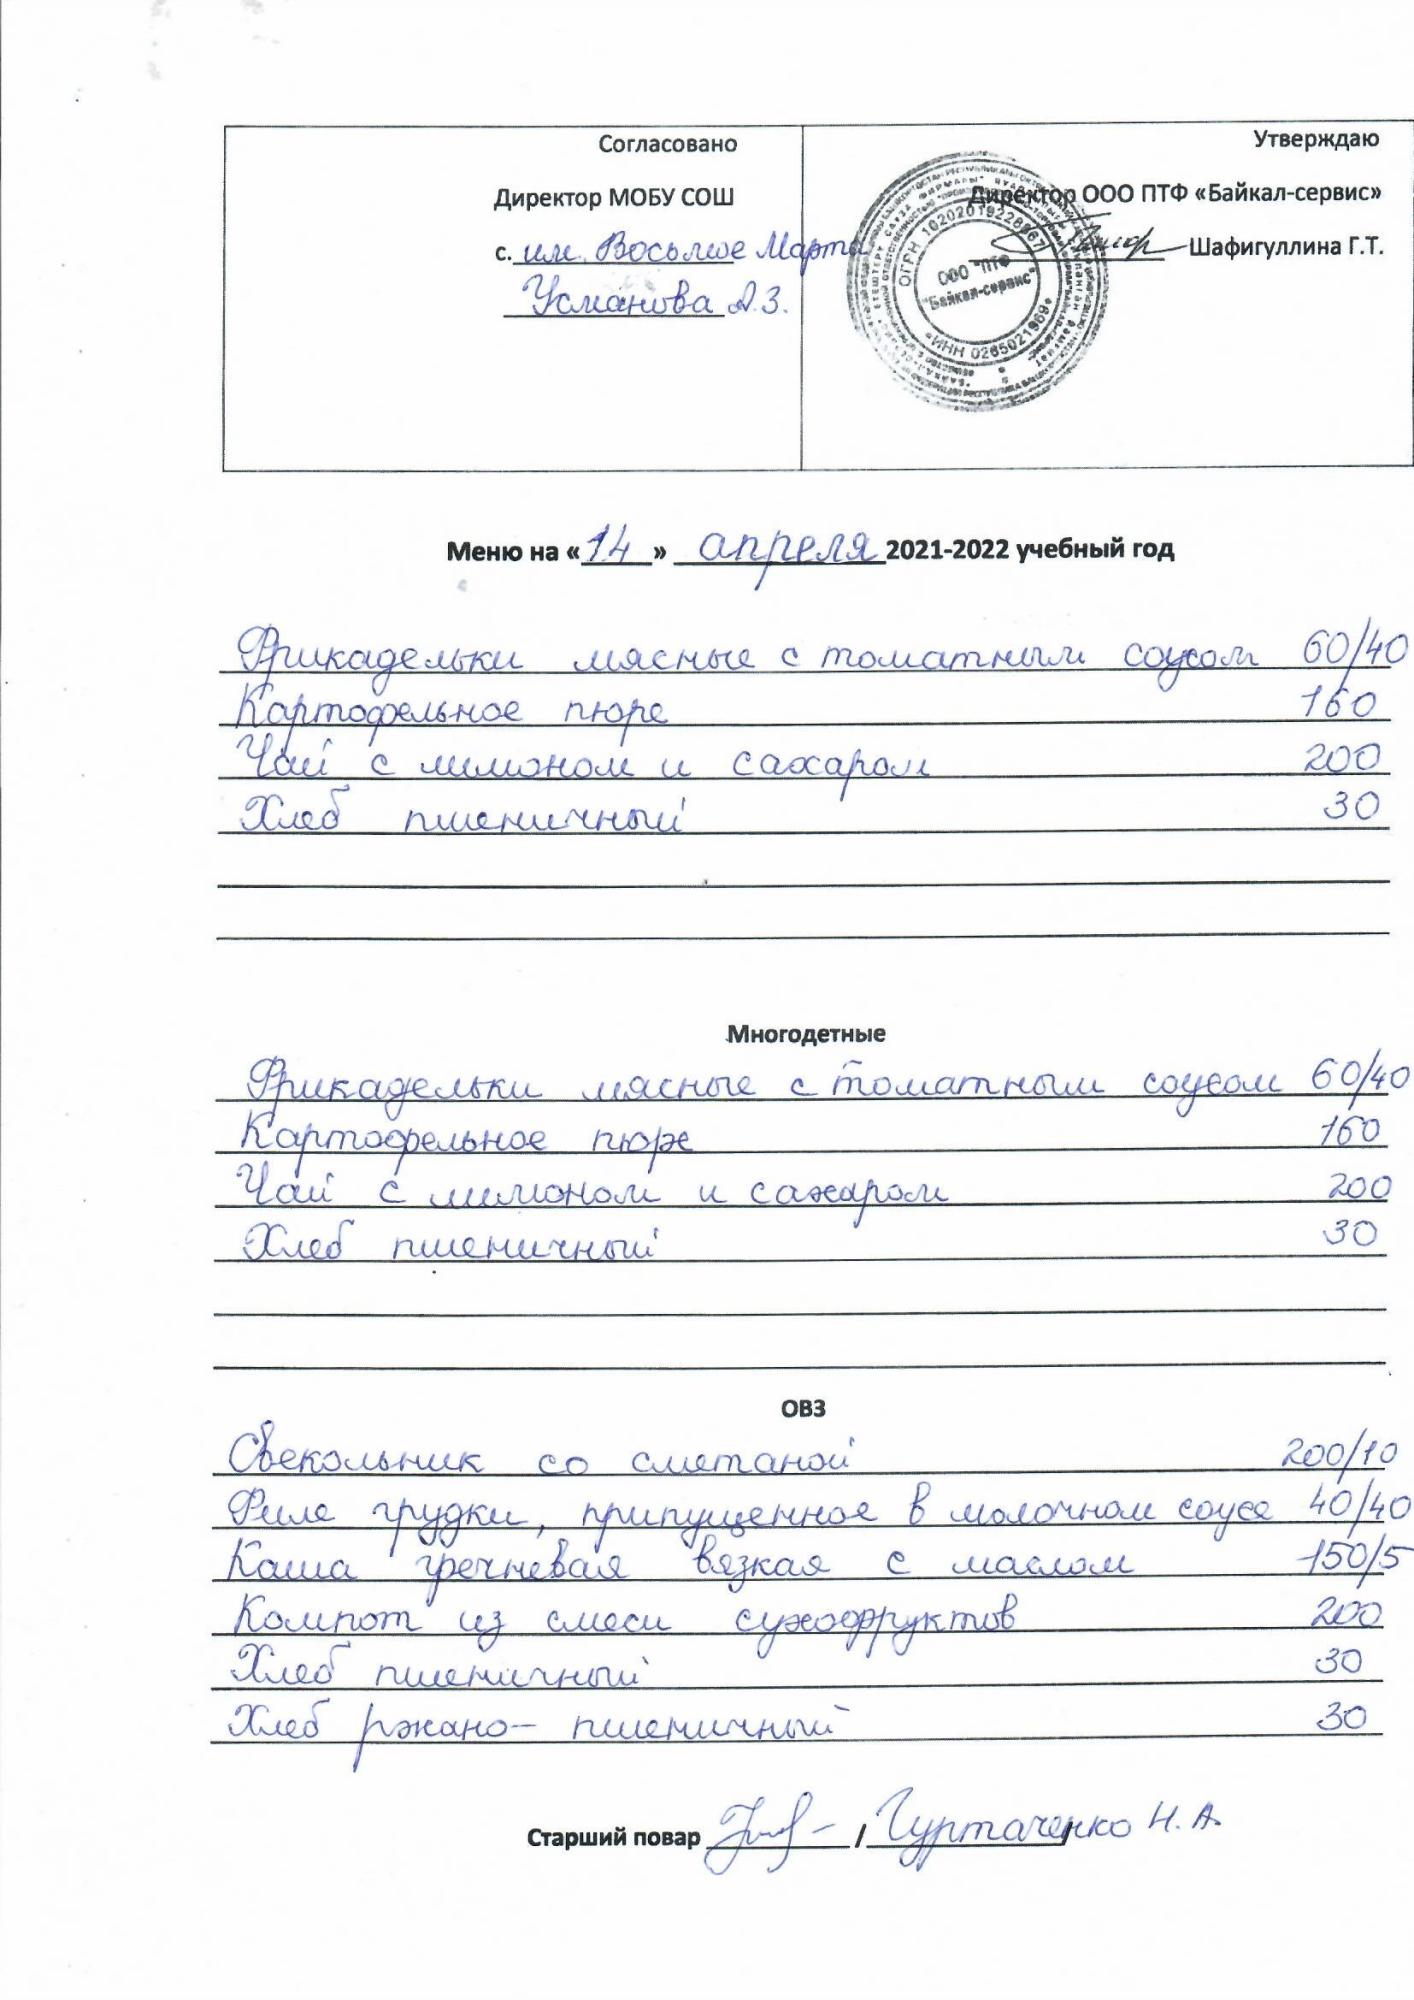 Согласовано
Директор МОБУ СОШ
с. им. Восьмое Марта
Усманова А.З.
Утверждаю
Директор ООО ПТФ «Байкал-сервис»
Шафигуллина Г.Т.
ОГРН 1020201922866
ООО "ПТФ
"Байкал-сервис"
ИНН 0265021969
Меню на «14» апреля 2021-2022 учебный год
Фрикадельки мясные с томатным соусом 60/40
Картофельное пюре 160
Чай с лимоном и сахаром 200
Хлеб пшеничный 30
Многодетные
Фрикадельки мясные с томатным соусом 60/40
Картофельное пюре 160
Чай с лимоном и сахаром 200
Хлеб пшеничный 30
ОВЗ
Свекольник со сметаной 200/10
Филе грудки, припущенное в молочном соусе 40/40
Каша гречневая вязкая с маслом 150/5
Компот из смеси сухофруктов 200
Хлеб пшеничный 30
Хлеб ржано- пшеничный 30
Старший повар / Гуртаченко Н. А. /